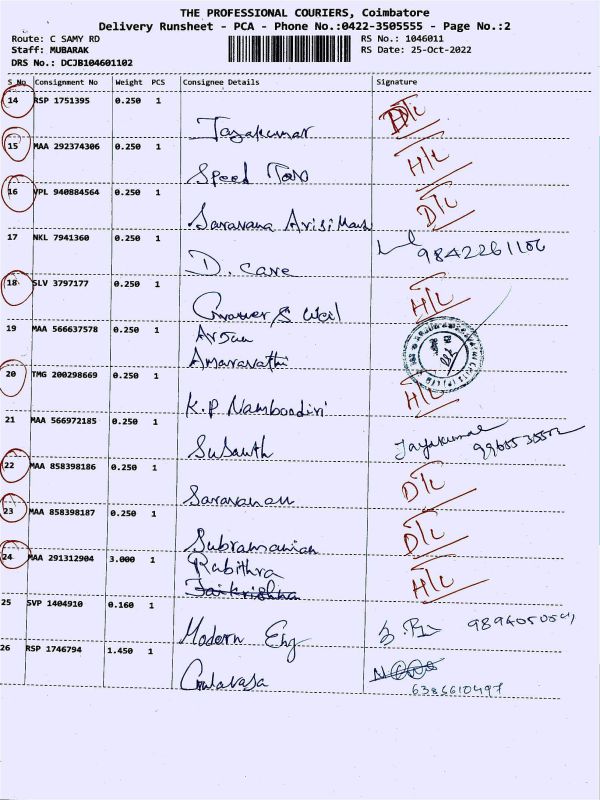 THE PROFESSIONAL COURIERS, Coimbatore
Delivery Runsheet - PCA - Phone No.:0422-3505555 - Page No.:2
Route: C SAMY RD RS No.: 1046011
Staff: MUBARAK RS Date: 25-Oct-2022
DRS No.: DCJB104601102
S No Consignment No Weight PCS Consignee Details Signature
14 RSP 1751395 0.250 1
Jayakumar D/L
15 MAA 292374306 0.250 1
Speed H/L
16 VPL 940884564 0.250 1
Saravana Arisi D/L
17 NKL 7941360 0.250 1
D. Care 9842261106
18 SLV 3797177 0.250 1
H/L
19 MAA 566637578 0.250 1
Arjun
Amaravathi
20 TMG 200298669 0.250 1
K.P Namboodiri H/L
21 MAA 566972185 0.250 1
Susanth Jayakumar
22 MAA 858398186 0.250 1
Saravanan D/L
23 MAA 858398187 0.250 1
Subramanian D/L
24 MAA 291312904 3.000 1
Rabithra
Jaikrishna H/L
25 SVP 1404910 0.160 1
Modern Eng
26 RSP 1746794 1.450 1
6386610497